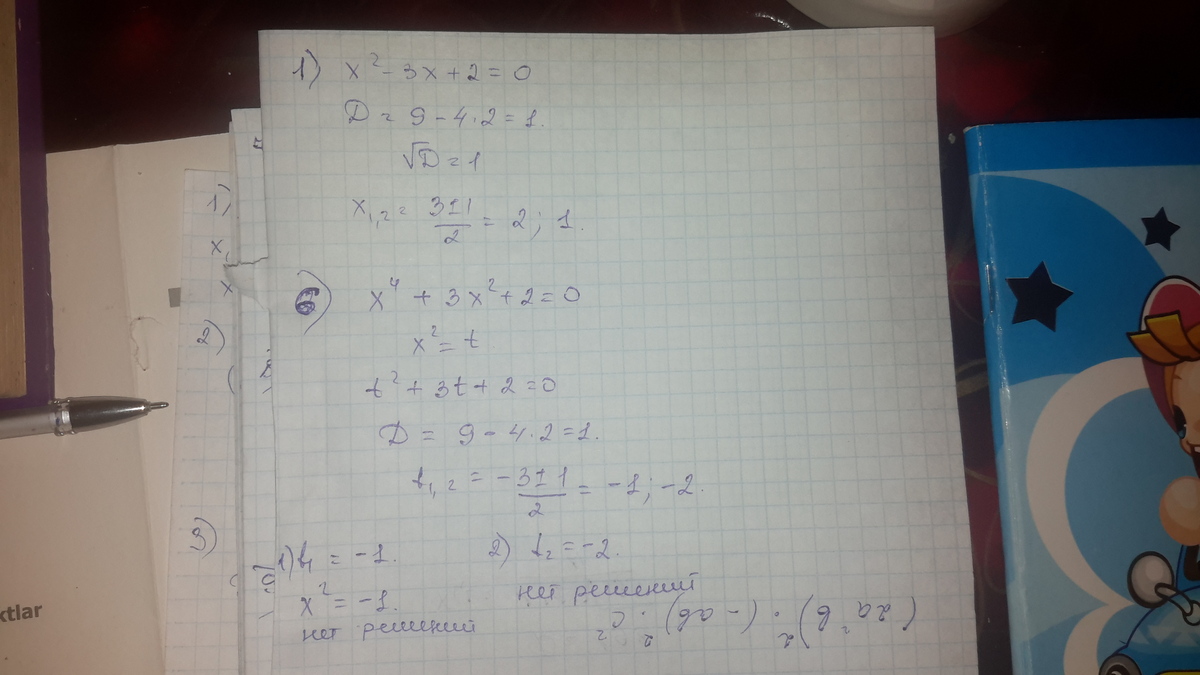 1) x² - 3x + 2 = 0
D = 9 - 4·2 = 1.
√D = 1
x₁,₂ = (3±1)/2 = 2; 1.
6) x⁴ + 3x² + 2 = 0
x² = t
t² + 3t + 2 = 0
D = 9 - 4·2 = 1.
t₁,₂ = (-3±1)/2 = -1; -2.
1) t₁ = -1. 2) t₂ = -2.
x² = -1. нет решений
нет решений
1)
x₁
x
2)
3)
ktlar